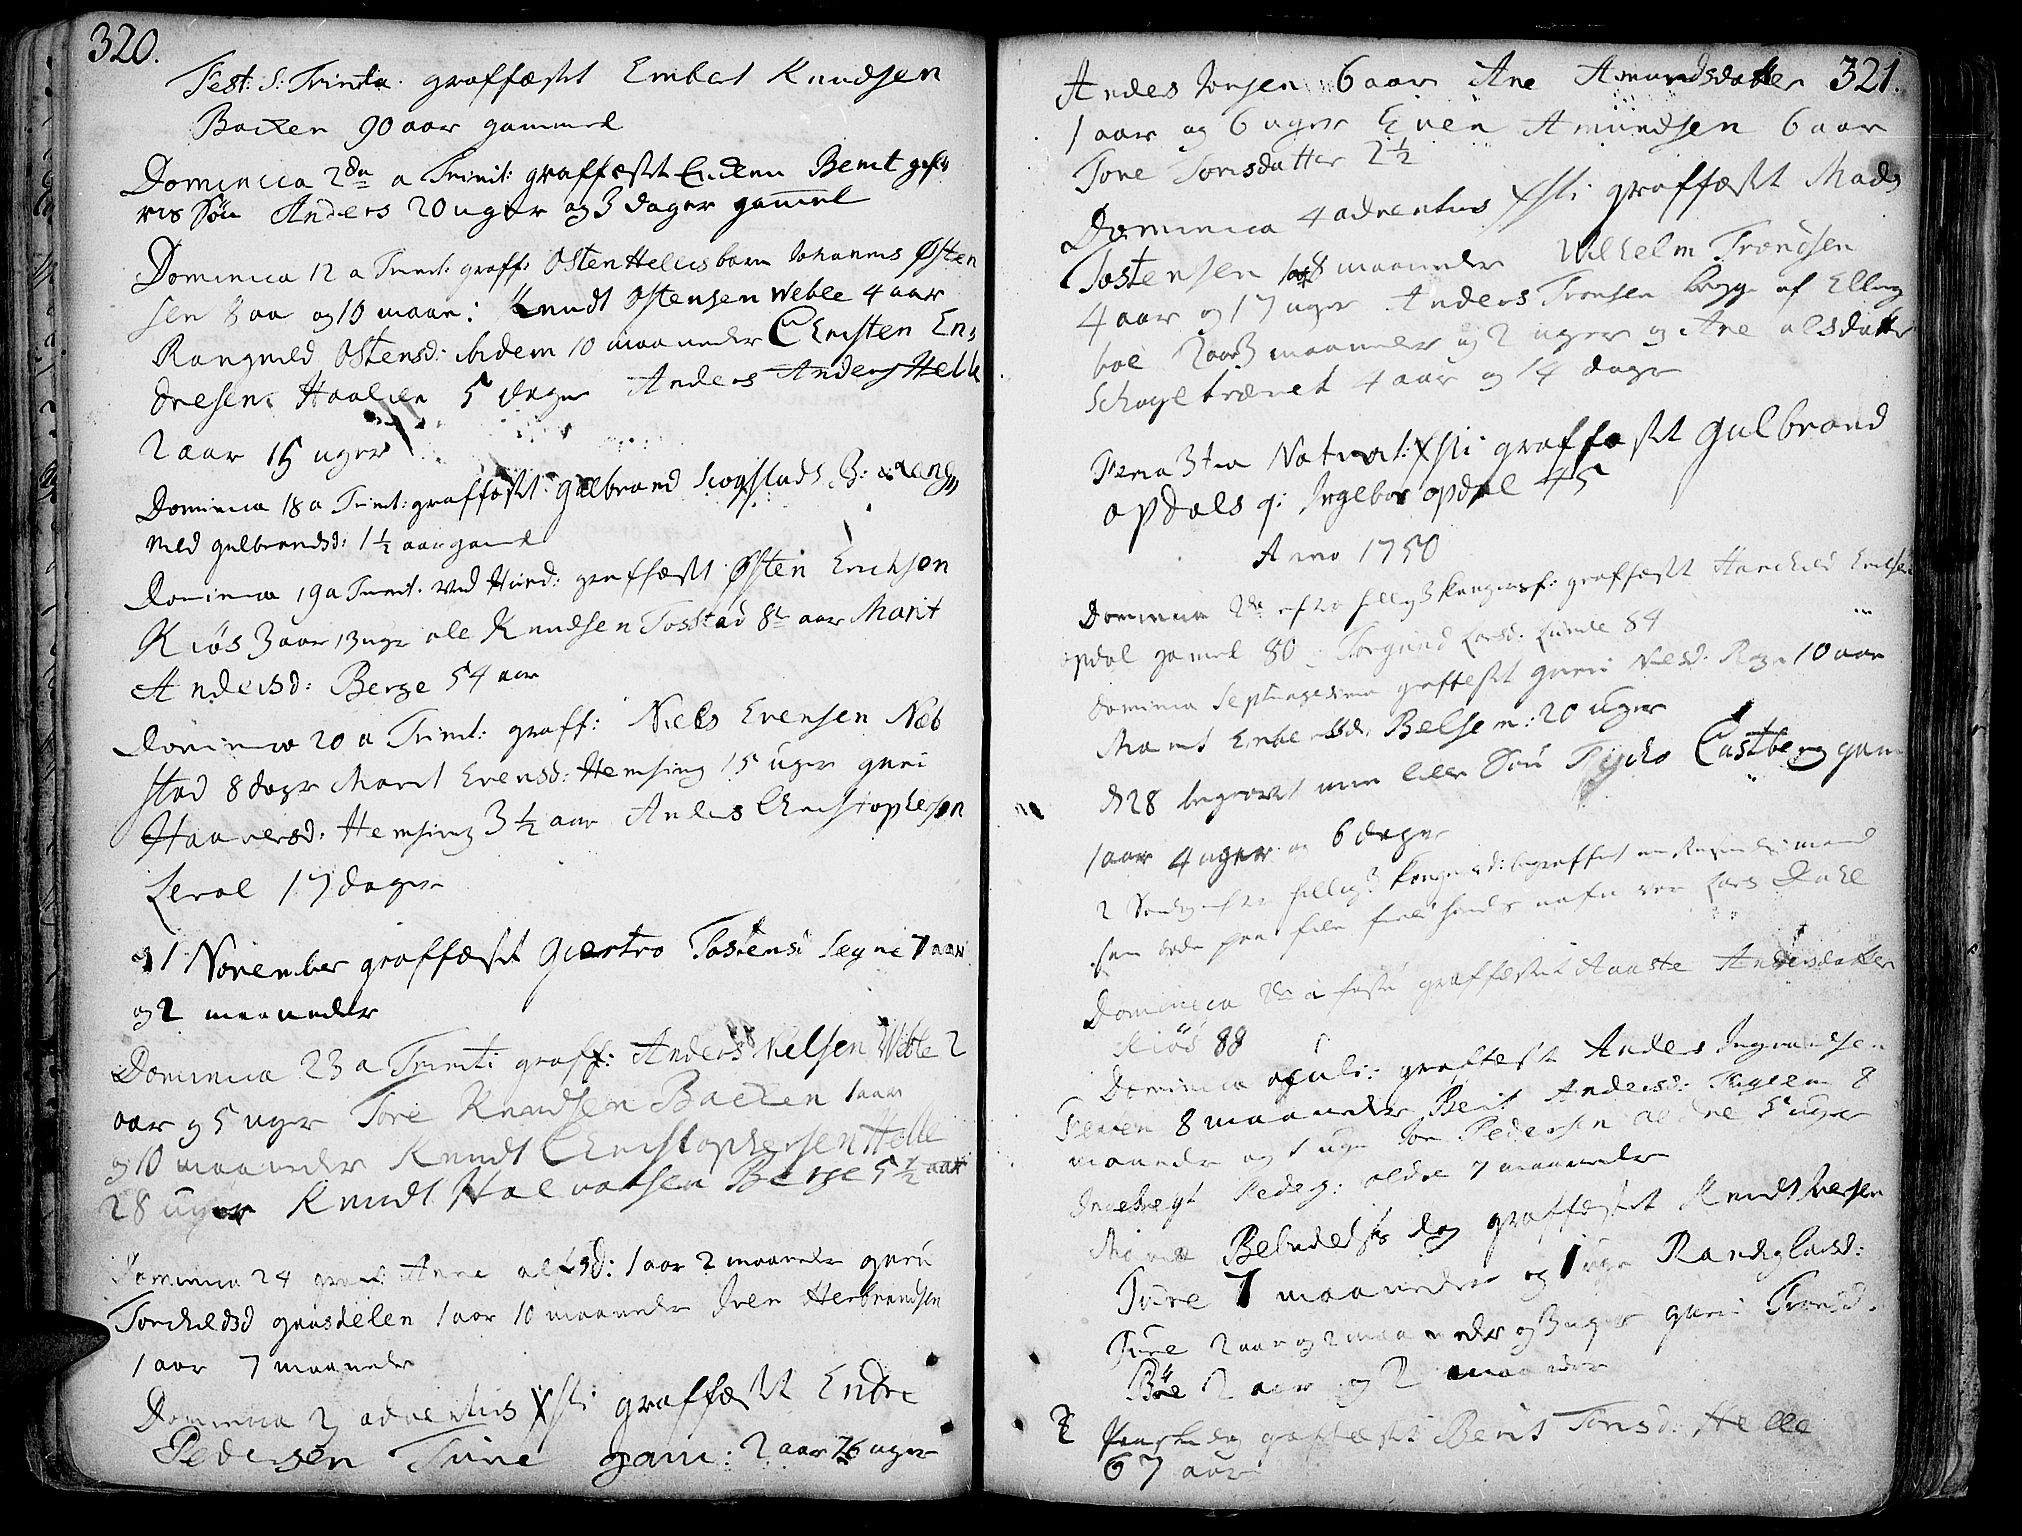 320.
Fest: S: Trinita. graffæstet Embret Knudsen
Backen 90 aar gammel
Dominica 2da a Trinit: graffæstet Bernt
Søn Anders 20 uger og 3 dager gammel
Dominica 12 a Trinit: graff: Østen Helles barn Johannes Østen
sen 8 aa og 10 maan: Knudt Ostensen Weble 4 aar
Rangnild Ostensd: ibidem 10 maaneder Christen En
dresen Haalien 5 dager Anders Anders Helle
2 aar 15 uger
Dominica 18 a Trinit: graffæstet gulbrand Scogstads
nild gulbrandsd: 1½ aar gamel
Dominica 19 a Trinit. ved Hurd: graffæstet Østen Erichsen
Kiøs 3 aar 13 uge ole Knudsen Tosstad 82 aar Marit
Andersd: Berge 54 aar
Dominica 20 a Trinit: graff: Niels Evensen Neb
stad 8 dage Marit Evensd: Hemsing 15 uger guri
Haaversd: Hemsing 3½ aar Anders Christophersen
Leral 17 dager
d 1 November graffæstet giertro Tostensd Legne 7 aar
og 2 maaneder
Dominica 23 a Trinit: graff: Anders Nielsen Weble 2
aar og 5 uger Tore Knudsen Backen 1 aar
og 10 maaneder Knudt Christophersen Helle
28 uger Knudt Halvorsen Berge 5½ aar
Dominica 24 graf: Anne olesd: 1 aar 2 maaneder guri
Torchildsd gaasdelen 1 aar 10 maaneder Iver Herbrandsen
1 aar 7 maaneder
Dominica 2 adventus Xsti graffæstet Endre
Pedersen Tune gam: 2 aar 26 uger
321.
Andes Jonsen 6 aar Ane Amundsdatter
1 aar og 6 uger Even Amundsen 6 aar
Tore Tomsdatter 2½
Dominica 4 adventus Xsti graffæstet Mads
Tostensen 8 maaneder Wilhelm Trondsen
4 aar og 17 uger Anders Tronsen begge af Elling
boe 2 aar 3 maaneder og 2 uger og Ane olsdatter
Schogeltrævet 4 aar og 14 dage
Feria 3tia Nativit: Xsti graffæstet gulbrand
opdals q: Ingebor opdal 45
Anno 1750
Dominica 2da efter hellig 3 kongersf: graffæstet Harchild Erichsen
opdal gamel 80 Torgund Larsd: Lunde 84
dominica Septuagesima graffæstet guri Nielsd: 10 aar
Marit Embretsd: Belsem: 20 uger
d 28 begravet min lille Søn Tycho Castberg gam
1 aar 4 uger og 6 dager
2 Søndag efter hellig 3 konge begraffvet en mand
som døde paa hands nafn var Lars Dahl
Dominica 2da a faste graffæstet Aaaste Andersdatter
Kiøs 88
Dominica oculi: graffæstet Anders Ingvaldsen
8 maaneder Berit Andersd: 8
maaneder og 1 uge Jon Pedersen oldre 5 uger
Ingebregt Peders: oldre 7 maaneder
Mariæ Bebudelses dag graffæstet Knudt Iversen
Tune 7 maaneder og 1 uge Randi olesd:
Tune 2 aar og 2 maaneder og 3 uger guri Tronsd.
Bøe 2 aar og 2 maaneder
2 Paaskedag graffæstet Berit Tonsd: Helle
67 aar